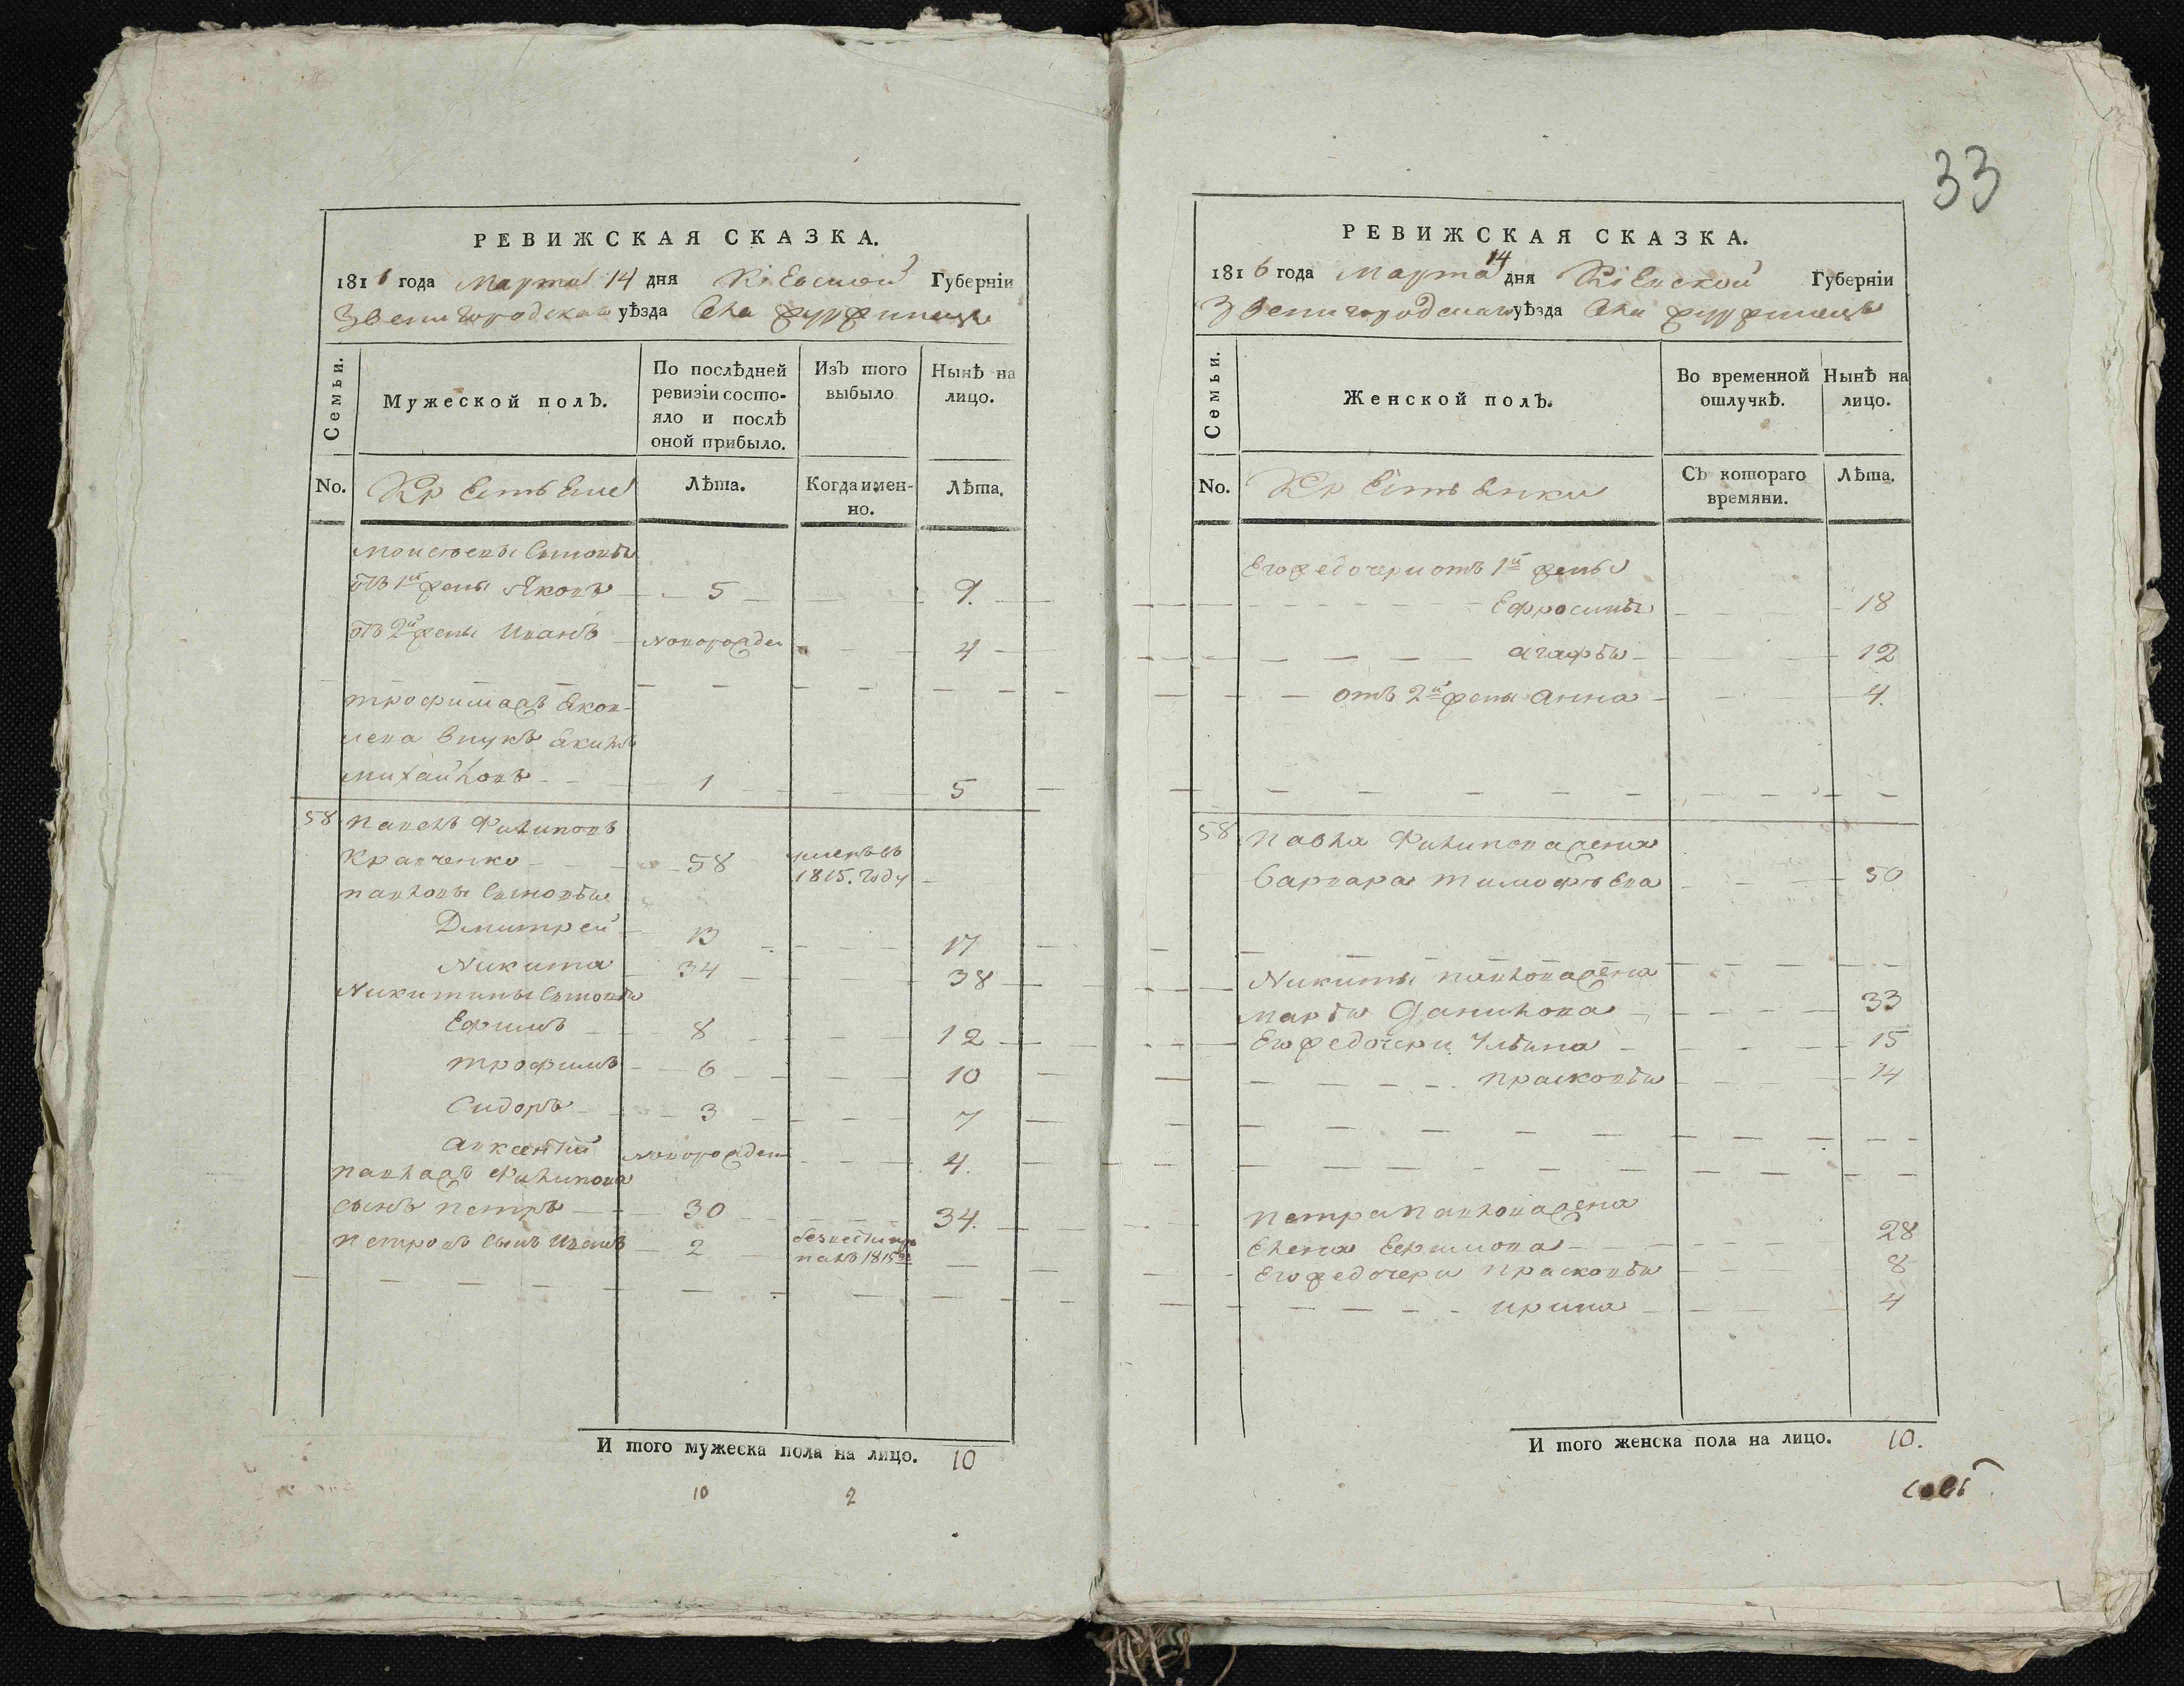 РЕВИЖСКАЯ СКАЗКА.
1816 года Марта 14 дня Кіевской Губерніи
Звенигородскаго уѣзда Села
Семьи.
Мужеской полъ.
По послѣдней
ревизіи состо-
яло и послѣ
оной прибыло.
Изъ того
выбыло
Нынѣ на
лицо.
No.
Крестьяне
Лѣта.
Когда имен-
но.
Лѣта.
Моисѣевы Сыновья
отъ 1й жены Яковъ 5 9.
отъ 2й жены Иванъ новорожден 4
трофима Яков-
лева внукъ Якимъ
Михайловъ 1 5
58 Павелъ Филиповъ
Кравченко 58 умеръ въ 1815. году
павловы Сыновья
Дмитрей 13 17
Никита 34 38
Никитины Сыновья
Ефимъ 8 12
трофимъ 6 10
Сидоръ 3 7
Авксентій новорожден 4.
павла Филипова
сынъ петръ 30 34.
петровъ Сынъ 2 1815
И того мужеска пола на лицо. 10
10 2
33
РЕВИЖСКАЯ СКАЗКА.
1816 года Марта 14 дня Кіевской Губерніи
Звенигородскаго уѣзда Села
Семьи.
Женской полъ.
Во временной
отлучкѣ.
Нынѣ на
лицо.
No.
Крестьянки
Съ котораго
времяни.
Лѣта.
Егожедочери отъ 1й жены
Ефросинья 18
агафья 12
отъ 2й жены Анна 4.
58 Павла Филипова жена
Варвара тимофѣева 50
Никиты павлова жена
Марья Данилова 33
Егожедочери Ульяна 15
прасковья 14
петра павлова жена
Елена 28
Егожедочери прасковья 8
ирина 4
И того женска пола на лицо. 10.